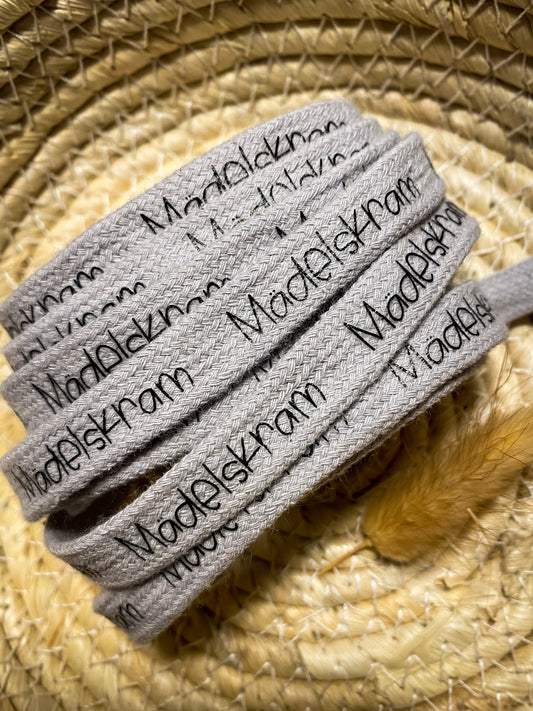 Mädelskram
Mädelskram
Mädelskram Mädelskram
Mädelskram Mädelskram
Mädelskram Mädelskram